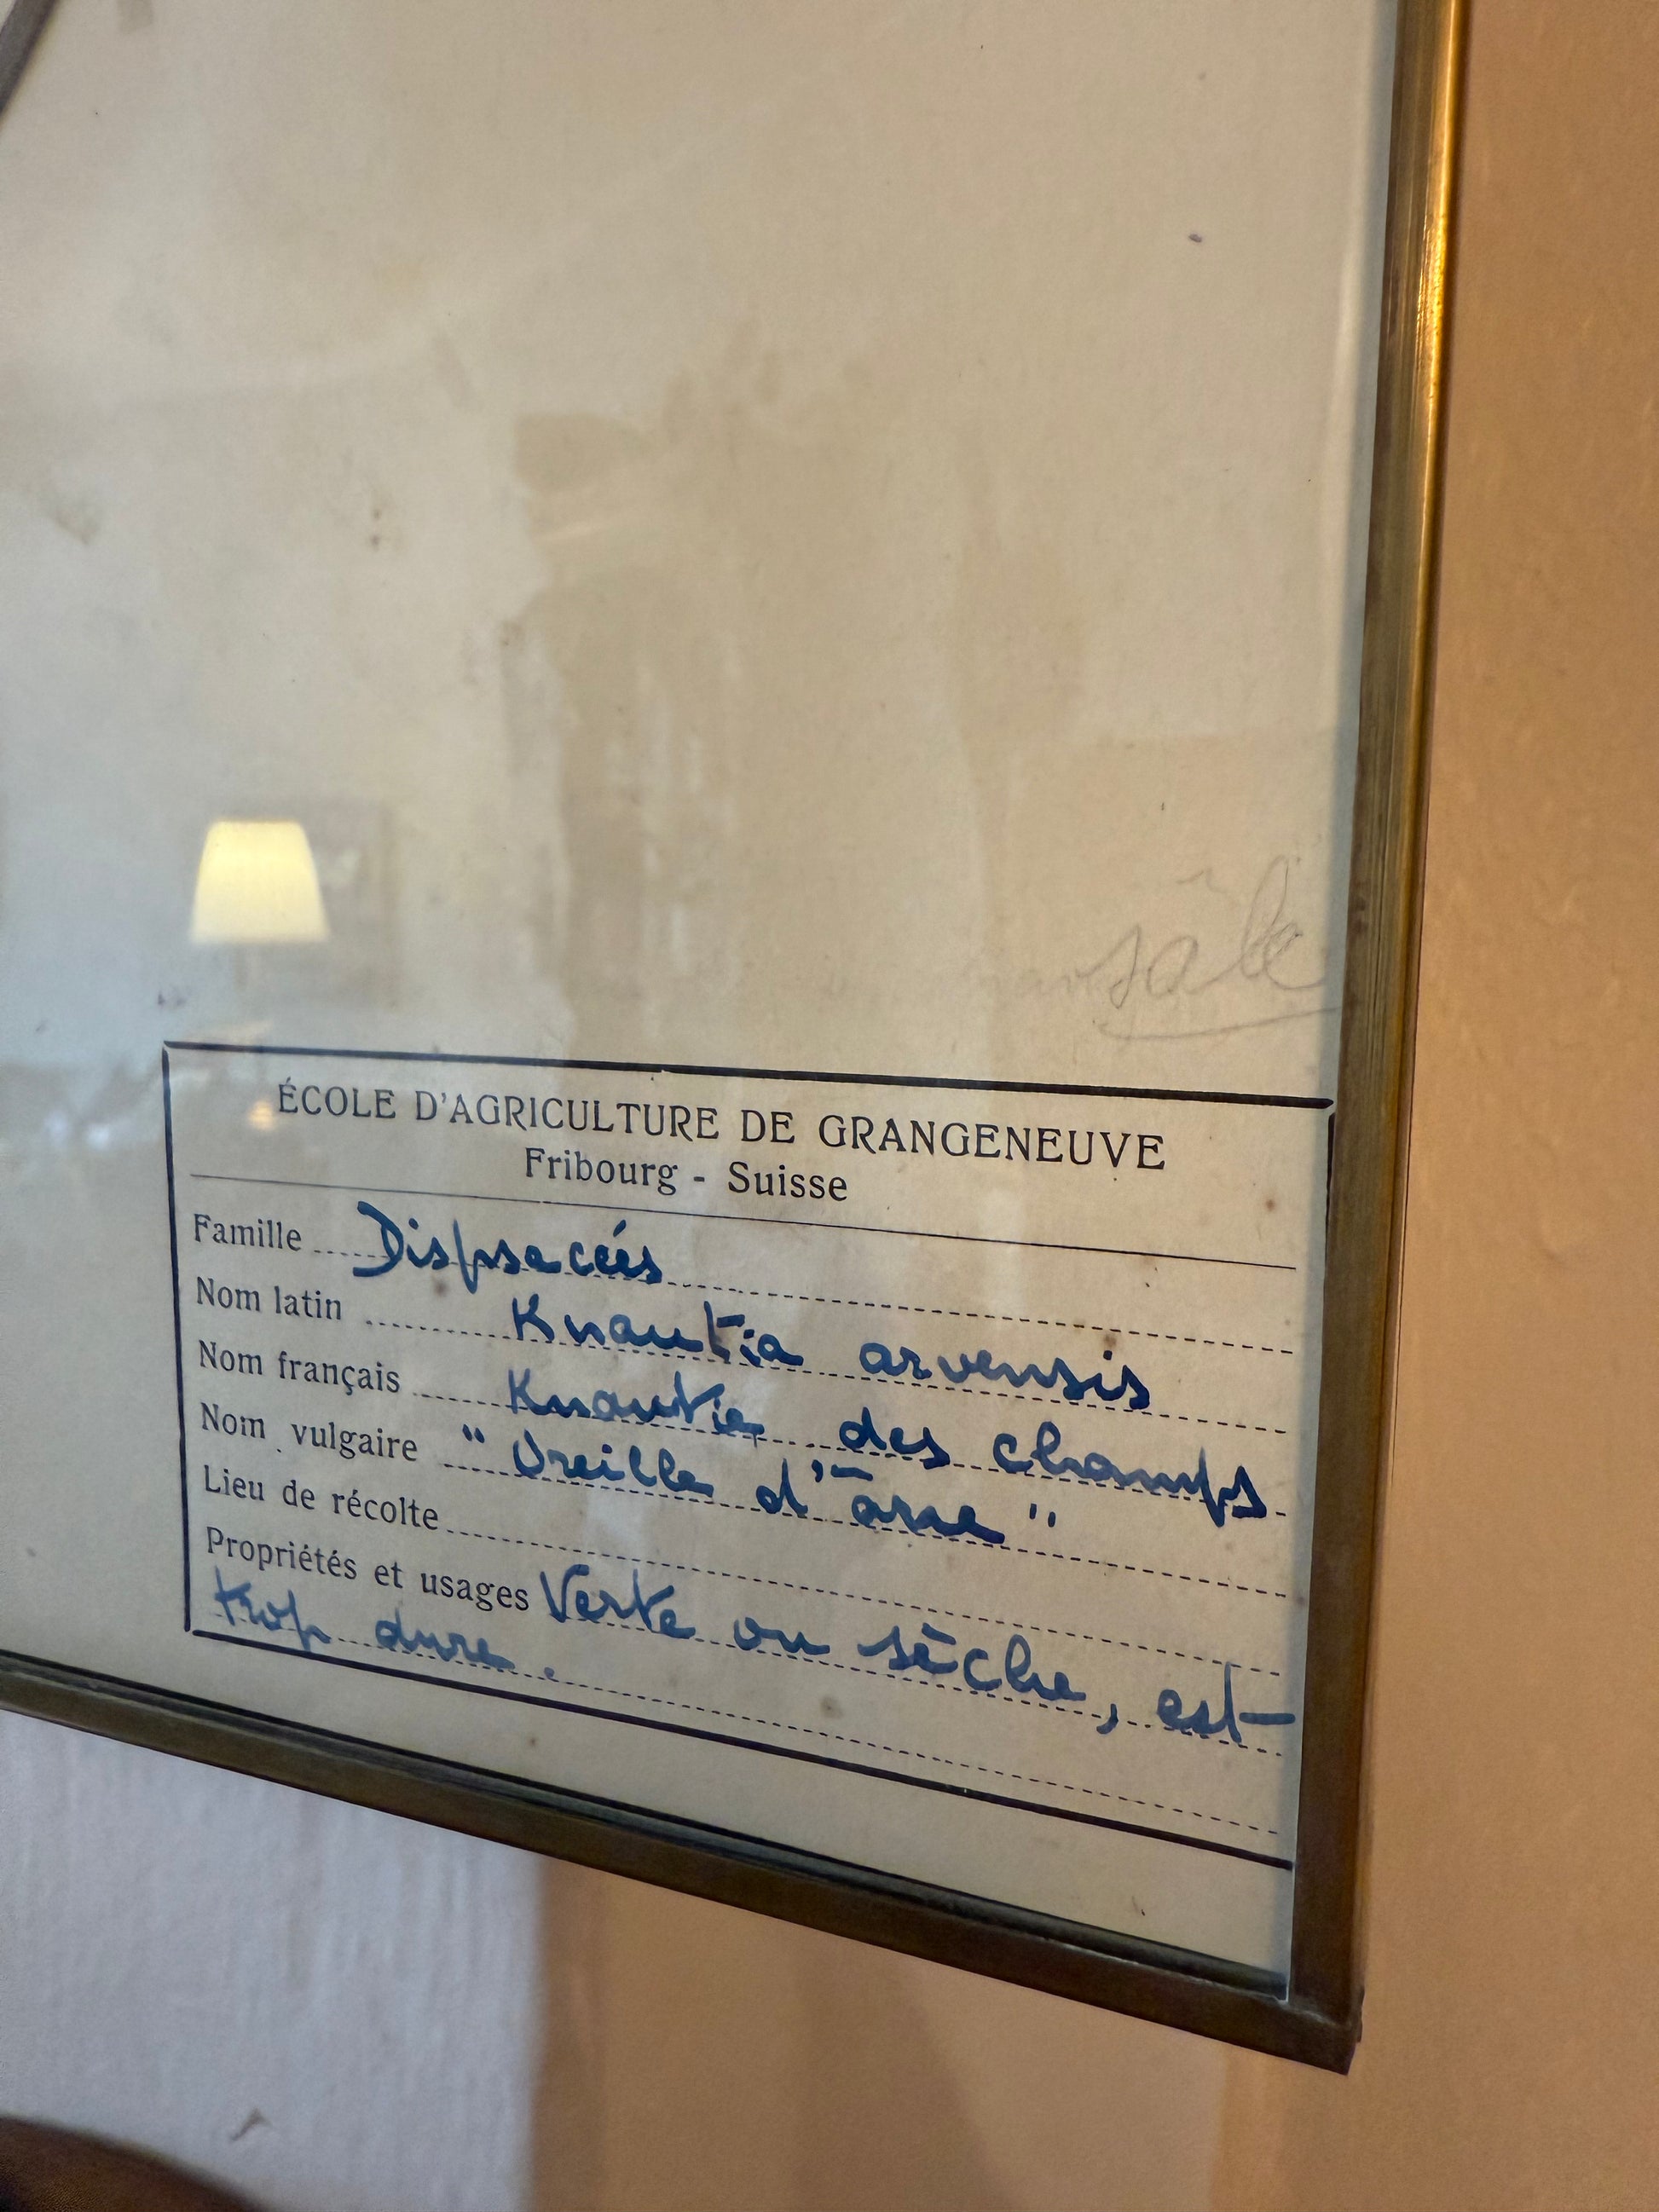 sale
ÉCOLE D'AGRICULTURE DE GRANGENEUVE
Fribourg - Suisse
Famille Dispsacées
Nom latin Knautia arvensis
Nom français Knautie des champs
Nom vulgaire "Oreille d'âne"
Lieu de récolte
Propriétés et usages Verte ou sèche, est
trop dure.